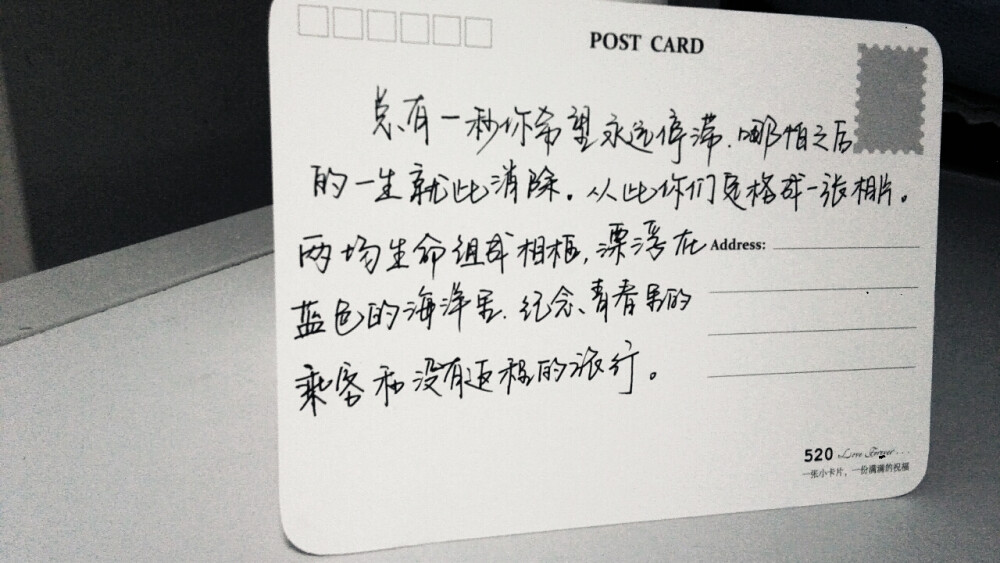 POST CARD
总有一秒你希望永远停滞,哪怕之后
的一生就此消除。从此你们定格成一张相片。
两场生命组成相框,漂浮在
Address:
蓝色的海洋里.纪念、青春里的
乘客和没有返程的旅行。
520 Love Forever...
一张小卡片,一份满满的祝福